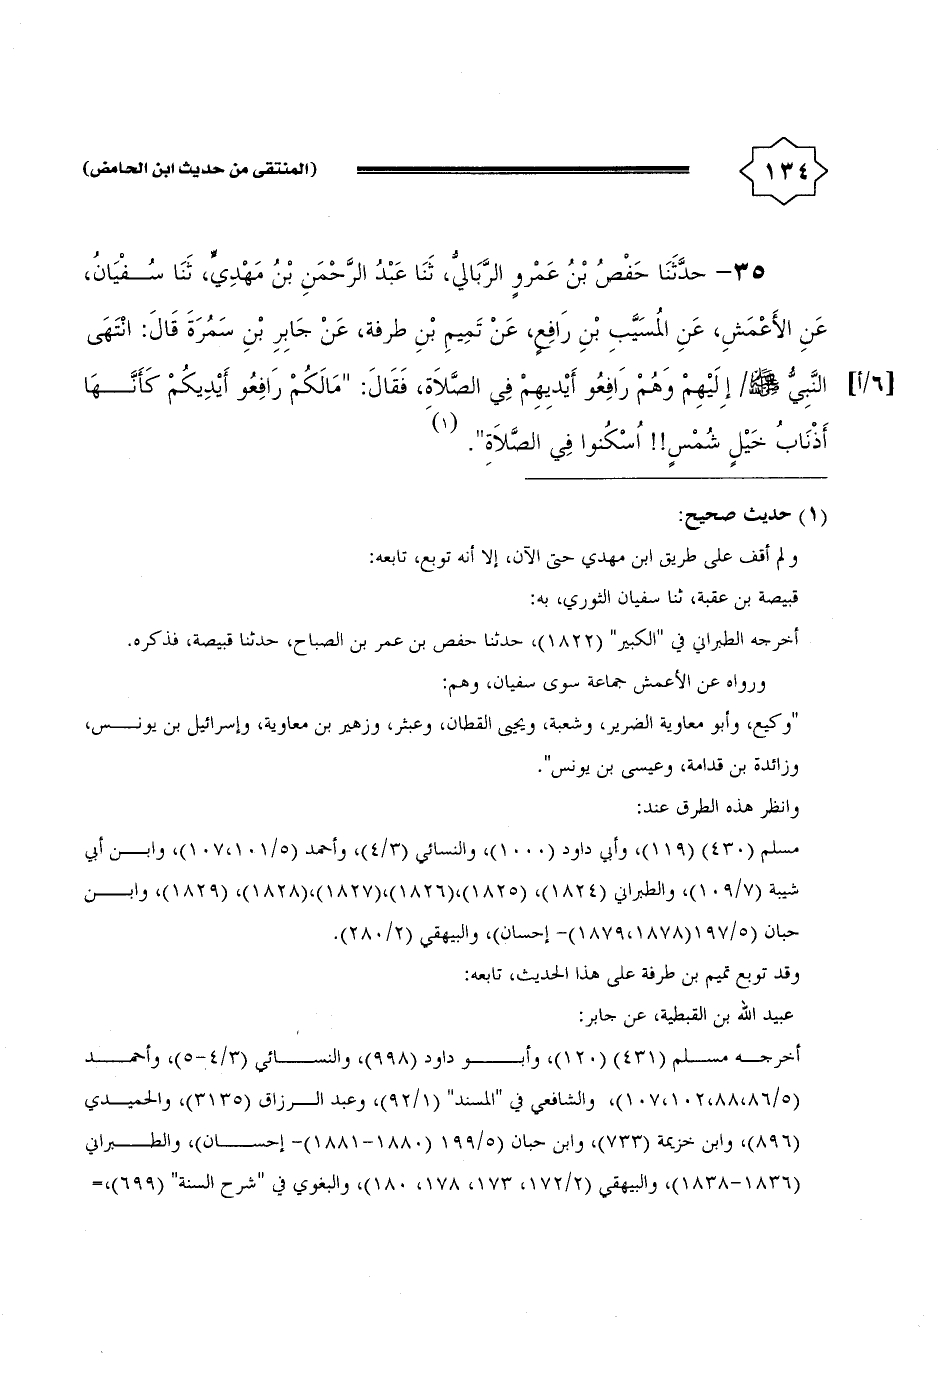 ١٣٤ (المنتقى من حديث ابن الحامض)
٣٥- حدَّثَنَا حَفْصُ بْنُ عَمْرٍو الرَّبَاليُّ، ثَنَا عَبْدُ الرَّحْمَنِ بْنُ مَهْدِيٍّ، ثَنَا سُفْيَانُ،
عَنِ الأَعْمَشِ، عَنِ المُسَيَّبِ بْنِ رَافِعٍ، عَنْ تَمِيمِ بْنِ طرفة، عَنْ جَابِرِ بْنِ سَمُرَةَ قَالَ: انْتَهَى
[٦/أ] النَّبِيُّ ﷺ/ إِلَيْهِمْ وَهُمْ رَافِعُو أَيْدِيهِمْ فِي الصَّلاَةِ، فَقَالَ: "مَالَكُمْ رَافِعُو أَيْدِيكُمْ كَأَنَّهَا
أَذْنَابُ خَيْلٍ شُمْسٍ!! اُسْكُنوا فِي الصَّلاَةِ".(١)
(١) حديث صحيح:
ولم أقف على طريق ابن مهدي حتى الآن، إلا أنه توبع، تابعه:
قبيصة بن عقبة، ثنا سفيان الثوري، به:
أخرجه الطبراني في "الكبير" (١٨٢٢)، حدثنا حفص بن عمر بن الصباح، حدثنا قبيصة، فذكره.
ورواه عن الأعمش جماعة سوى سفيان، وهم:
"وكيع، وأبو معاوية الضرير، وشعبة، ويحيى القطان، وعبثر، وزهير بن معاوية، وإسرائيل بن يونس،
وزائدة بن قدامة، وعيسى بن يونس".
وانظر هذه الطرق عند:
مسلم (٤٣٠) (١١٩)، وأبي داود (١٠٠٠)، والنسائي (٤/٣)، وأحمد (١٠٧،١٠١/٥)، وابن أبي
شيبة (١٠٩/٧)، والطبراني (١٨٢٤)، (١٨٢٥)،(١٨٢٦)،(١٨٢٧)،(١٨٢٨)، (١٨٢٩)، وابن
حبان (١٩٧/٥(١٨٧٩،١٨٧٨)- إحسان)، والبيهقي (٢٨٠/٢).
وقد توبع تميم بن طرفة على هذا الحديث، تابعه:
عبيد الله بن القبطية، عن جابر:
أخرجه مسلم (٤٣١) (١٢٠)، وأبو داود (٩٩٨)، والنسائي (٤/٣-٥)، وأحمد
(١٠٧،١٠٢،٨٨،٨٦/٥)، والشافعي في "المسند" (٩٢/١)، وعبد الرزاق (٣١٣٥)، والحميدي
(٨٩٦)، وابن خزيمة (٧٣٣)، وابن حبان (١٩٩/٥ (١٨٨٠-١٨٨١)- إحسان)، والطبراني
(١٨٣٦-١٨٣٨)، والبيهقي (١٧٢/٢، ١٧٣، ١٧٨، ١٨٠)، والبغوي في "شرح السنة" (٦٩٩)،=